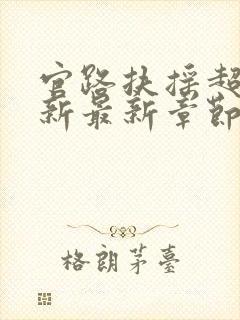 官路扶摇超
新最新章節
格朗茅臺